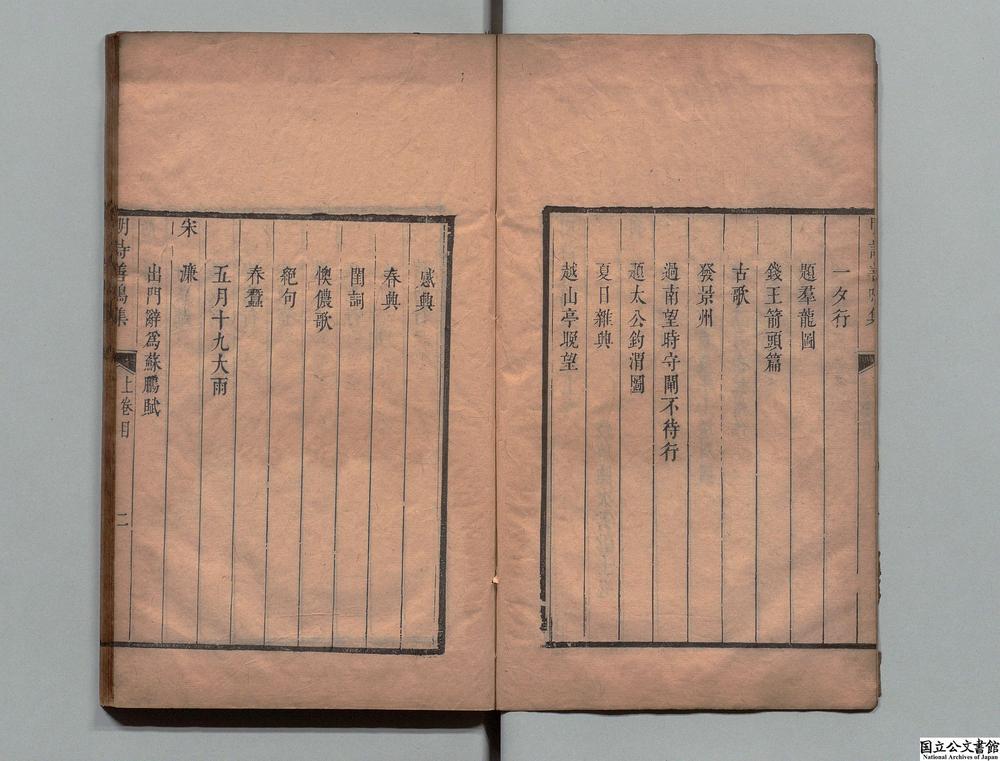 一夕行
題羣龍圖
錢王箭頭篇
古歌
發景州
過南望時守閘不待行
題太公釣渭圖
夏日雜興
越山亭晚望
感興
春興
閨詞
懊儂歌
絕句
春蠶
五月十九大雨
宋濂
出門辭爲蘇鵬賦
明詩善鳴集 上卷目 二
国立公文書館
National Archives of Japan